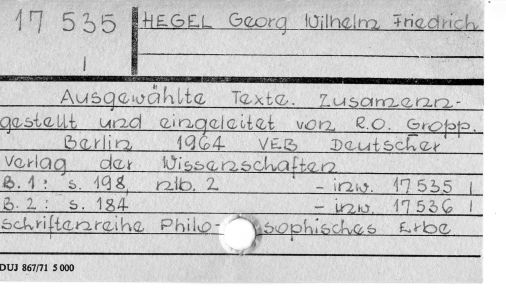 17 535 HEGEL Georg Wilhelm Friedrich
I
Ausgewählte Texte. Zusamenn-
gestellt und eingeleitet von R.O. Gropp.
Berlin 1964 VEB Deutscher
Verlag der Wissenschaften
B. 1: s. 198, nlb. 2 - inw. 17535 I
B. 2: s. 184 - inw. 17536 I
schriftenreihe Philo- sophisches Erbe
DUJ 867/71 5 000